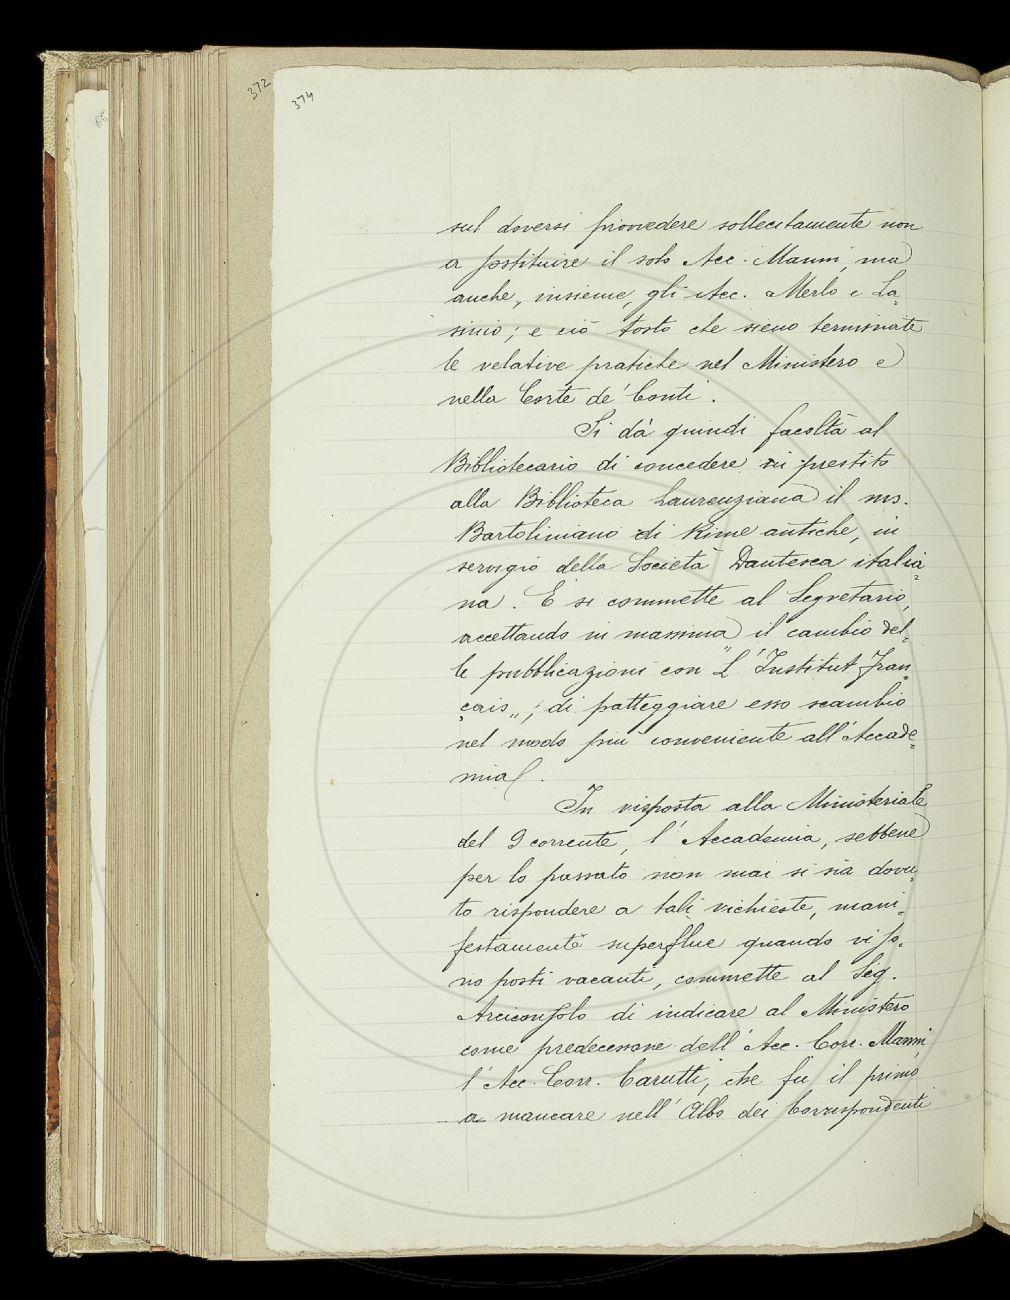 372
374
sul doversi provvedere sollecitamente non
a sostituire il solo Acc. Manni, ma
anche, insieme, gli Acc. Merlo e La-
sinio; e ciò tosto che sieno terminate
le relative pratiche nel Ministero e
nella Corte de' Conti.
Si dà quindi facoltà al
Bibliotecario di concedere in prestito
alla Biblioteca Laurenziana il ms.
Bartoliniano di Rime antiche, in
servigio della Società Dantesca italia-
na. E si commette al Segretario,
accettando in massima il cambio del-
le pubblicazioni con "L'Institut Fran-
çais", di patteggiare esso scambio
nel modo più conveniente all'Accade-
mia.
In risposta alla Ministeriale
del 9 corrente, l'Accademia, sebbene
per lo passato non mai si sia dovu-
to rispondere a tali richieste, mani-
festamente superflue quando vi so-
no posti vacanti, commette al Sig.
Arciconsolo di indicare al Ministero
come predecessore dell'Acc. Corr. Manni,
l'Acc. Corr. Carutti, che fu il primo
a mancare nell'Albo dei Corrispondenti